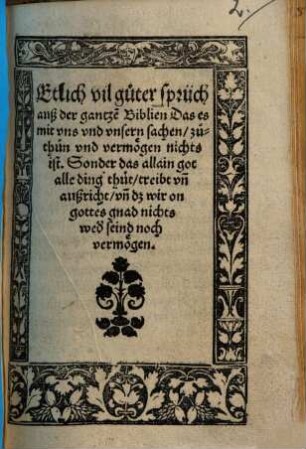 2.
Etlich vil gůter sprüch
auß der gantzẽ Biblien Das es
mit vns vnd vnsern sachen/ zů-
thůn vnd vermögen nichts
ist. Sonder das allain got
alle ding thůt/ treibt vñ
außricht/ vñ dz wir on
gottes gnad nichts
wed̕ seind noch
vermögen.